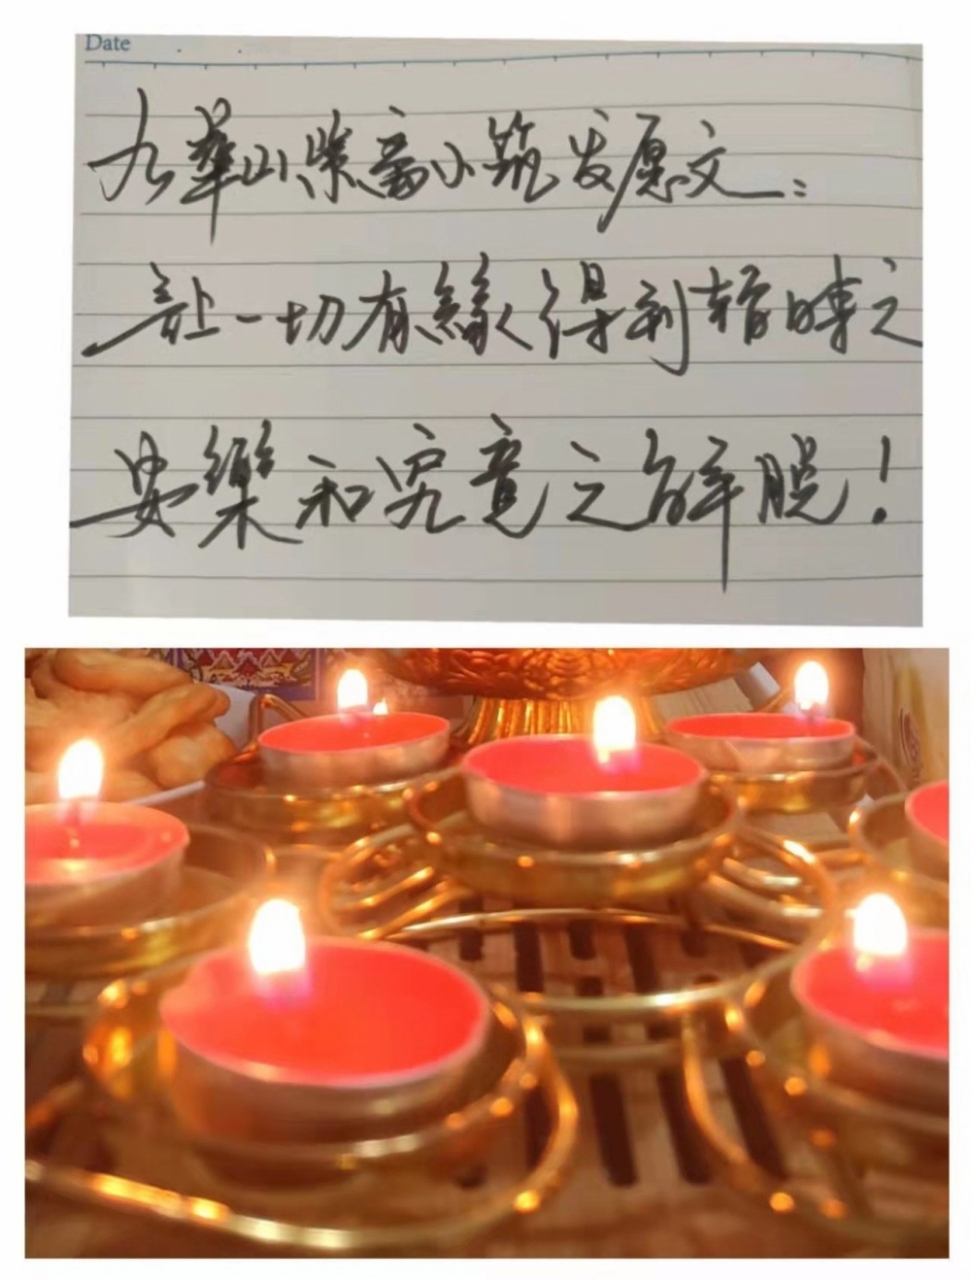 Date
九華山紫小筑发愿文：
让一切有緣得到暂時之
安樂和究竟之解脱！